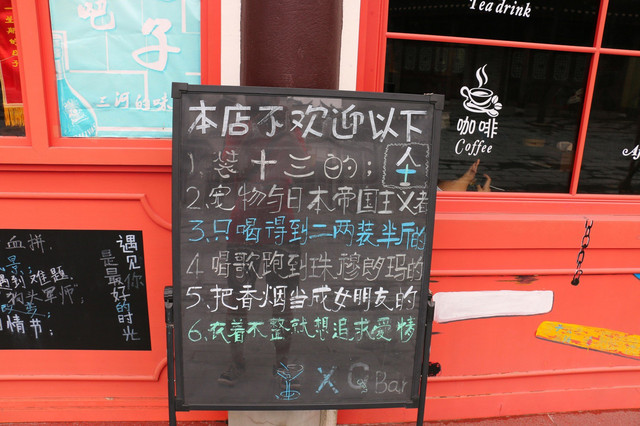 吧子
三河的味
Tea drink
咖啡
Coffee
本店不欢迎以下
1.装十三的;
2.宠物与日本帝国主义者
3.只喝得到二两装半斤的
4 唱歌跑到珠穆朗玛的
5.把香烟当成女朋友的
6.衣着不整就想追求爱情
X G Bar
血拼.
遇到难题
狗头军师,
情书;
遇见你
是最好的时光